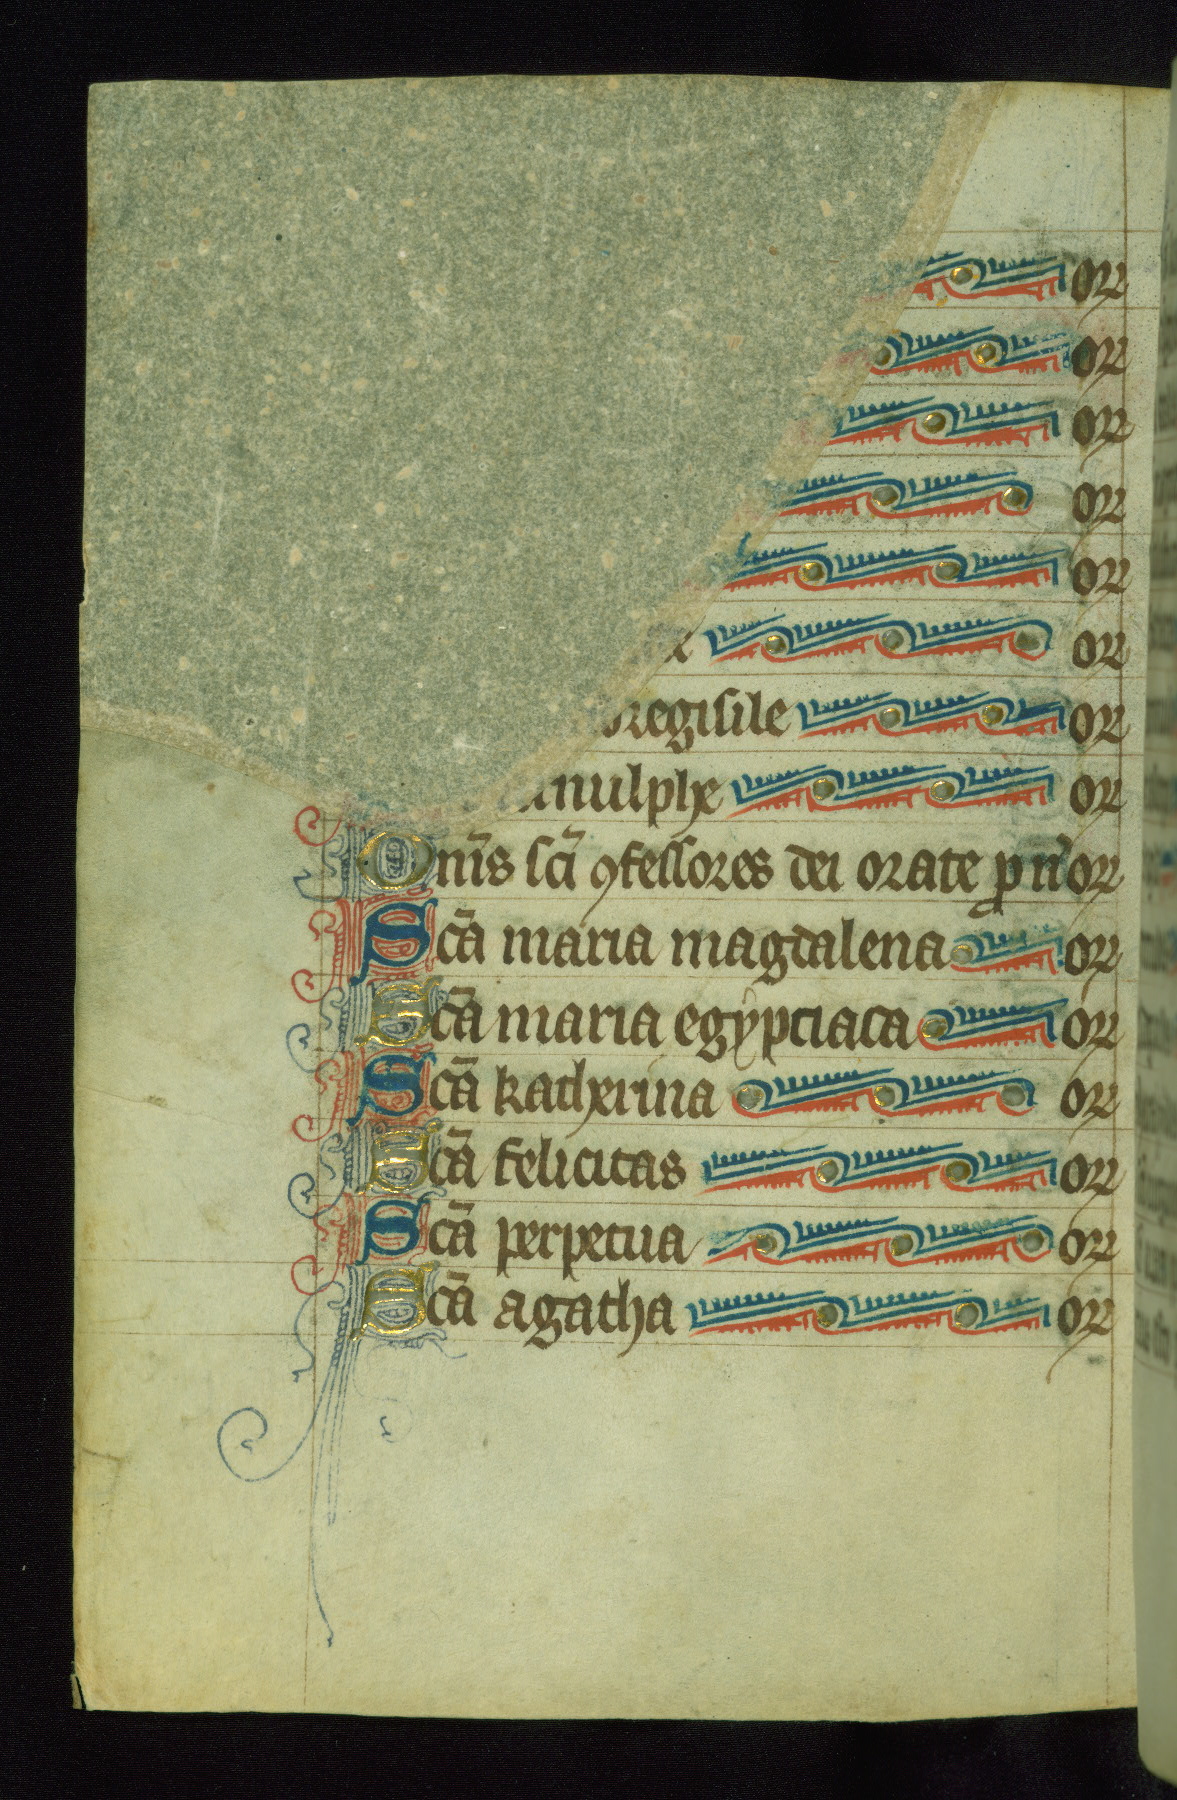 or
or
or
or
or
or
regisile or
nulphe or
Om̄s sc̄i ꝯfessores dei orate p n̄ or
Sc̄a maria magdalena or
Sc̄a maria egypciaca or
Sc̄a katherina or
Sc̄a felicitas or
Sc̄a perpetua or
Sc̄a agatha or